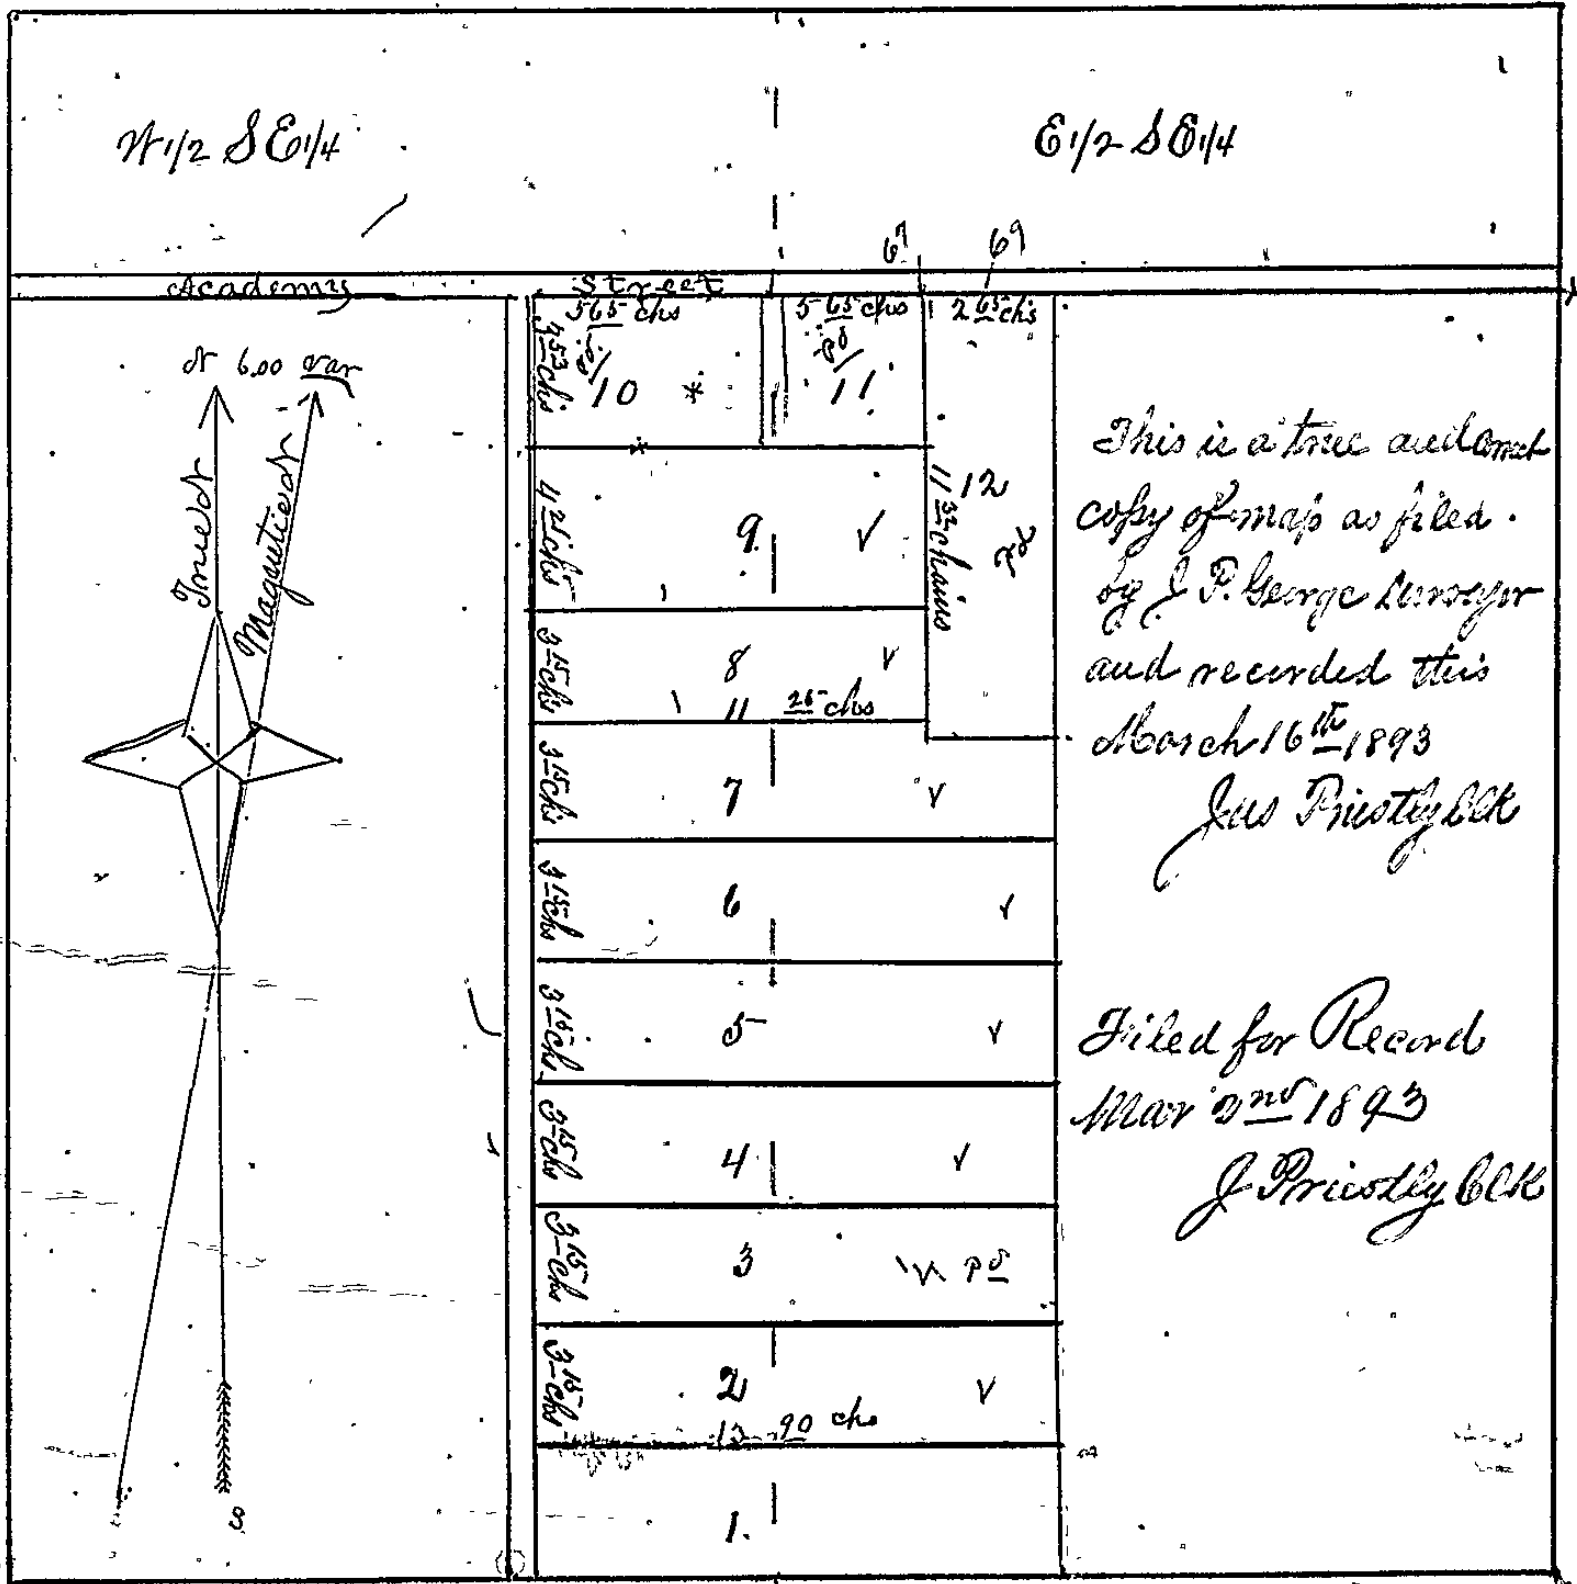 W 1/2 S E 1/4
E 1/2 S E 1/4
67 69
Academy Street
5 65 chs
5 65 chs
2 65 chs
3 53 chs
pd
10 *
pd
11
N 6.00 var
True N
Magnetic N
*
4 21 chs
9.
11 32 chains
12
pd
3 15 chs
8
11 25 chs
3 15 chs
7
3 15 chs
6
3 15 ch
5
3 15 chs
4
3 15 chs
3
pd
3 15 chs
2
13 90 chs
1.
S
This is a true and correct
copy of map as filed.
by J. P. George Surveyor
and recorded this
March 16th 1893
Jas Priestly Clk
Filed for Record
Mar 2nd 1893
J Priestly Clk